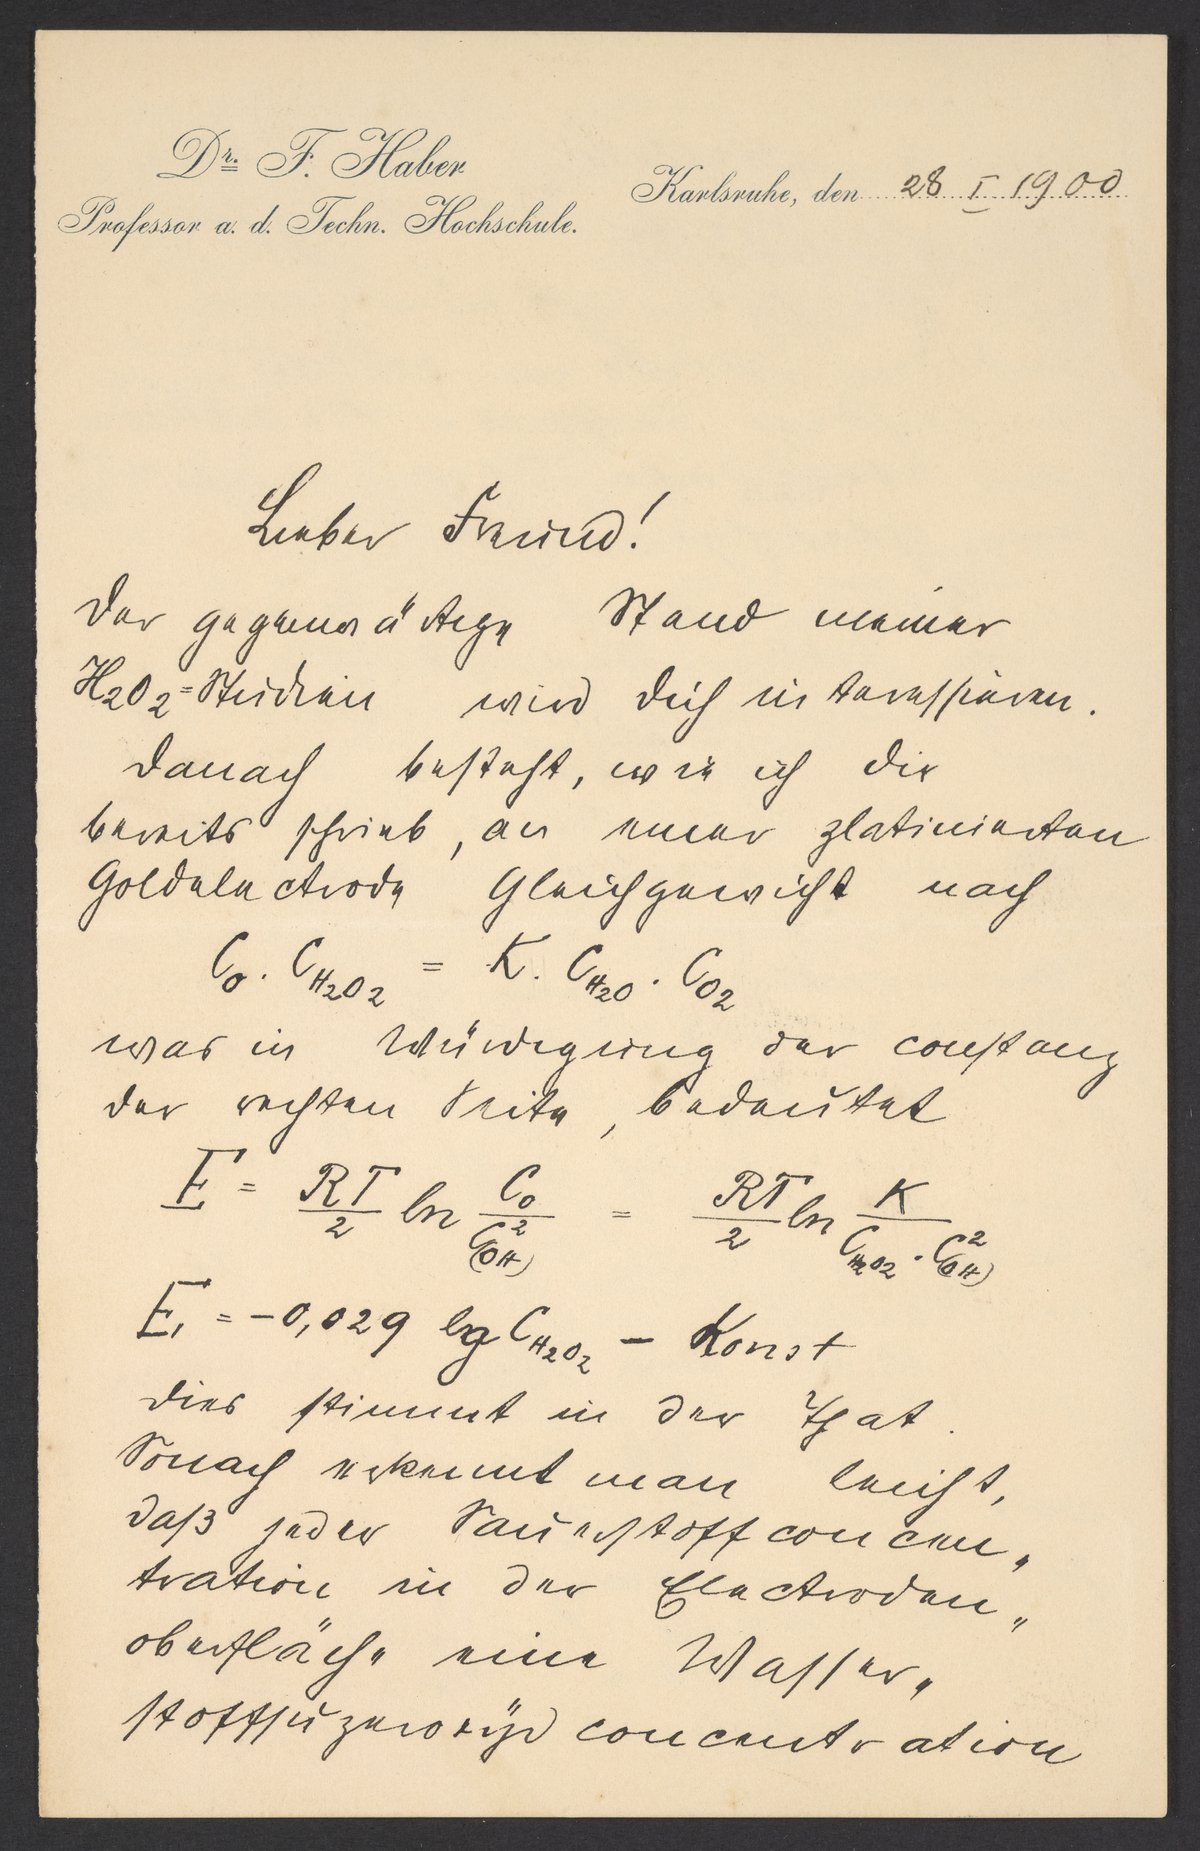 Dr. F. Haber
Professor a. d. Techn. Hochschule.
Karlsruhe, den 28 I 1900
Lieber Freund!
Der gegenwärtige Stand meiner
H₂O₂=Studien wird Dich interessieren.
Danach besteht, wie ich Dir
bereits schrieb, an einer platinierten
Goldelectrode Gleichgewicht nach
C₀ . C_H₂O₂ = K . C_H₂O . C_O₂
was in Würdigung der constanz
der rechten Seite, bedeutet
E = RT/2 ln C₀/C²(OH) = RT/2 ln K/C_H₂O₂ . C²(OH)
E, = −0,029 lg C_H₂O₂ − Konst
dies stimmt in der That.
Sonach erkennt man leicht,
daß jeder Sauerstoffconcen„
tration in der Electroden„
oberfläche eine Wasser„
stoffsuperoxÿd concentration